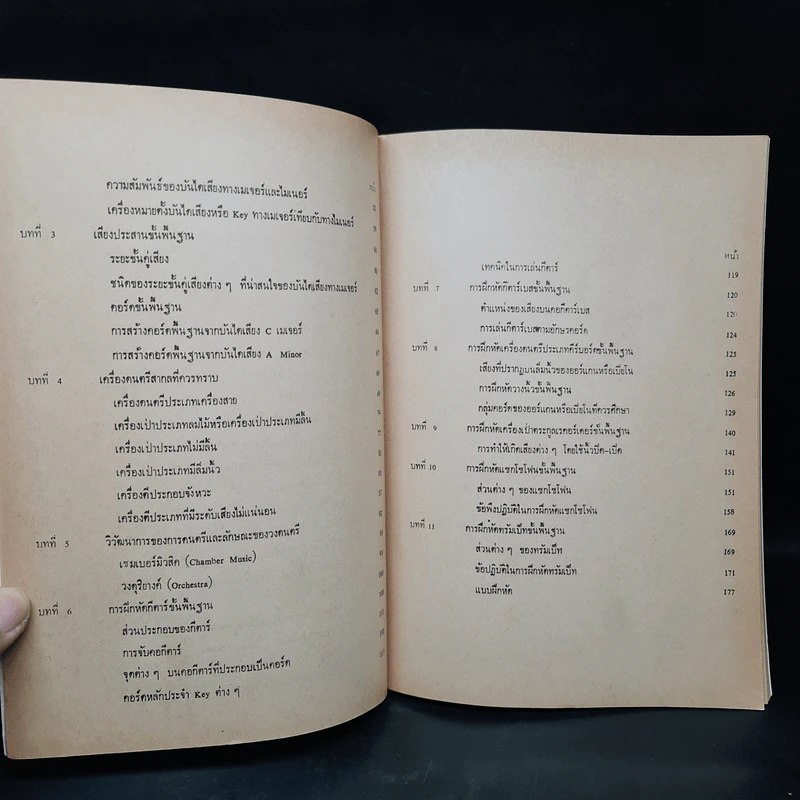 ความสัมพันธ์ของบันไดเสียงทางเมเจอร์และไมเนอร์
เครื่องหมายตั้งบันไดเสียงหรือ Key ทางเมเจอร์เทียบกับทางไมเนอร์
บทที่ 3 เสียงประสานขั้นพื้นฐาน
ระยะขั้นคู่เสียง
ชนิดของระยะขั้นคู่เสียงต่าง ๆ ที่น่าสนใจของบันไดเสียงทางเมเจอร์
คอร์ดขั้นพื้นฐาน
การสร้างคอร์ดพื้นฐานจากบันไดเสียง C เมเจอร์
การสร้างคอร์ดพื้นฐานจากบันไดเสียง A Minor
บทที่ 4 เครื่องดนตรีสากลที่ควรทราบ
เครื่องดนตรีประเภทเครื่องสาย
เครื่องเป่าประเภทลมไม้หรือเครื่องเป่าประเภทมีลิ้น
เครื่องเป่าประเภทไม่มีลิ้น
เครื่องเป่าประเภทมีลิ่มนิ้ว
เครื่องตีประกอบจังหวะ
เครื่องตีประเภทที่มีระดับเสียงไม่แน่นอน
บทที่ 5 วิวัฒนาการของการดนตรีและลักษณะของวงดนตรี
เชมเบอร์มิวสิค (Chamber Music)
วงดุริยางค์ (Orchestra)
บทที่ 6 การฝึกหัดกีตาร์ขั้นพื้นฐาน
ส่วนประกอบของกีตาร์
การจับคอกีตาร์
จุดต่าง ๆ บนคอกีตาร์ที่ประกอบเป็นคอร์ด
คอร์ดหลักประจำ Key ต่าง ๆ
หน้า
เทคนิคในการเล่นกีตาร์ 119
บทที่ 7 การฝึกหัดกีตาร์เบสขั้นพื้นฐาน 120
ตำแหน่งของเสียงบนคอกีตาร์เบส 120
การเล่นกีตาร์เบสตามอักษรคอร์ด 124
บทที่ 8 การฝึกหัดเครื่องดนตรีประเภทคีร์บอร์ดขั้นพื้นฐาน 125
เสียงที่ปรากฏบนลิ่มนิ้วของออร์แกนหรือเปียโน 125
การฝึกหัดวางนิ้วขั้นพื้นฐาน 126
กลุ่มคอร์ดของออร์แกนหรือเปียโนที่ควรศึกษา 129
บทที่ 9 การฝึกหัดเครื่องเป่าตระกูลเรคอร์เดอร์ขั้นพื้นฐาน 140
การทำให้เกิดเสียงต่าง ๆ โดยใช้นิ้วปิด-เปิด 141
บทที่ 10 การฝึกหัดแซกโซโฟนขั้นพื้นฐาน 151
ส่วนต่าง ๆ ของแซกโซโฟน 151
ข้อพึงปฏิบัติในการฝึกหัดแซกโซโฟน 158
บทที่ 11 การฝึกหัดทรัมเป็ทขั้นพื้นฐาน 169
ส่วนต่าง ๆ ของทรัมเป็ท 169
ข้อปฏิบัติในการฝึกหัดทรัมเป็ท 171
แบบฝึกหัด 177